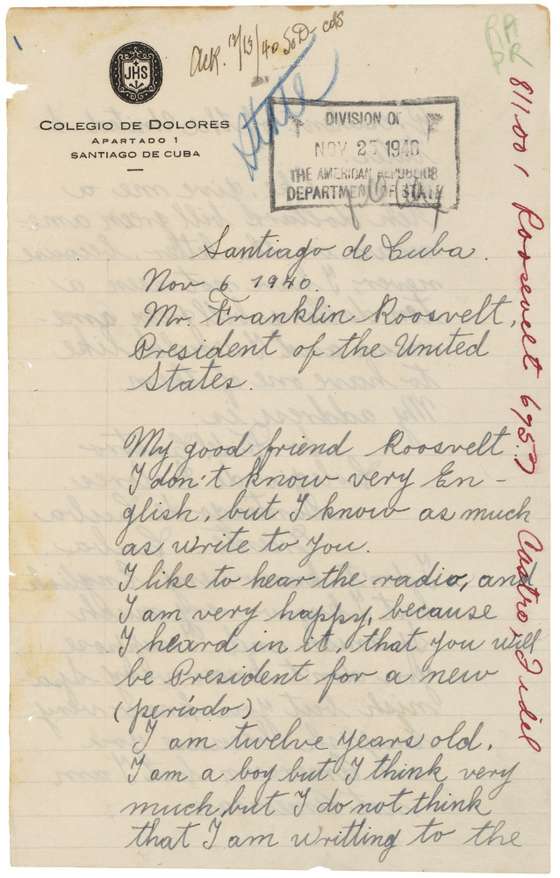 Ack. 12/13/40 SoD- cds
RA
JHS
COLEGIO DE DOLORES
APARTADO 1
SANTIAGO DE CUBA
State
DIVISION OF
NOV 25 1940
THE AMERICAN REPUBLICS
DEPARTMENT OF STATE
811.001 Roosevelt 6957
Castro, Fidel
Santiago de Cuba.
Nov 6 1940.
Mr. Franklin Roosvelt,
President of the United
States.
My good friend Roosvelt
I don't know very En-
glish, but I know as much
as write to you.
I like to hear the radio, and
I am very happy, because
I heard in it, that you will
be President for a new
(período)
I am twelve years old.
I am a boy but I think very
much but I do not think
that I am writting to the